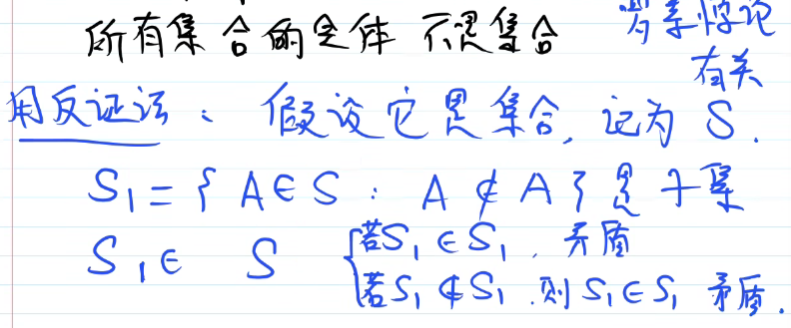 所有集合的全体 不是集合 罗素悖论
有关
用反证法、假设它是集合, 记为 S.
S₁={ A∈S : A∉A } 是子集
S₁∈ S {若S₁∈S₁, 矛盾
若S₁∉S₁, 则 S₁∈S₁ 矛盾.